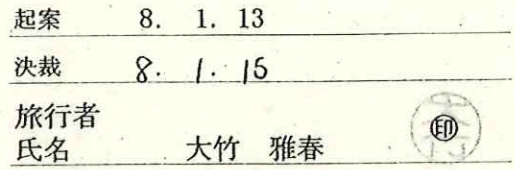 起案 8. 1. 13
決裁 8. 1. 15
旅行者
氏名 大竹 雅春 ㊞